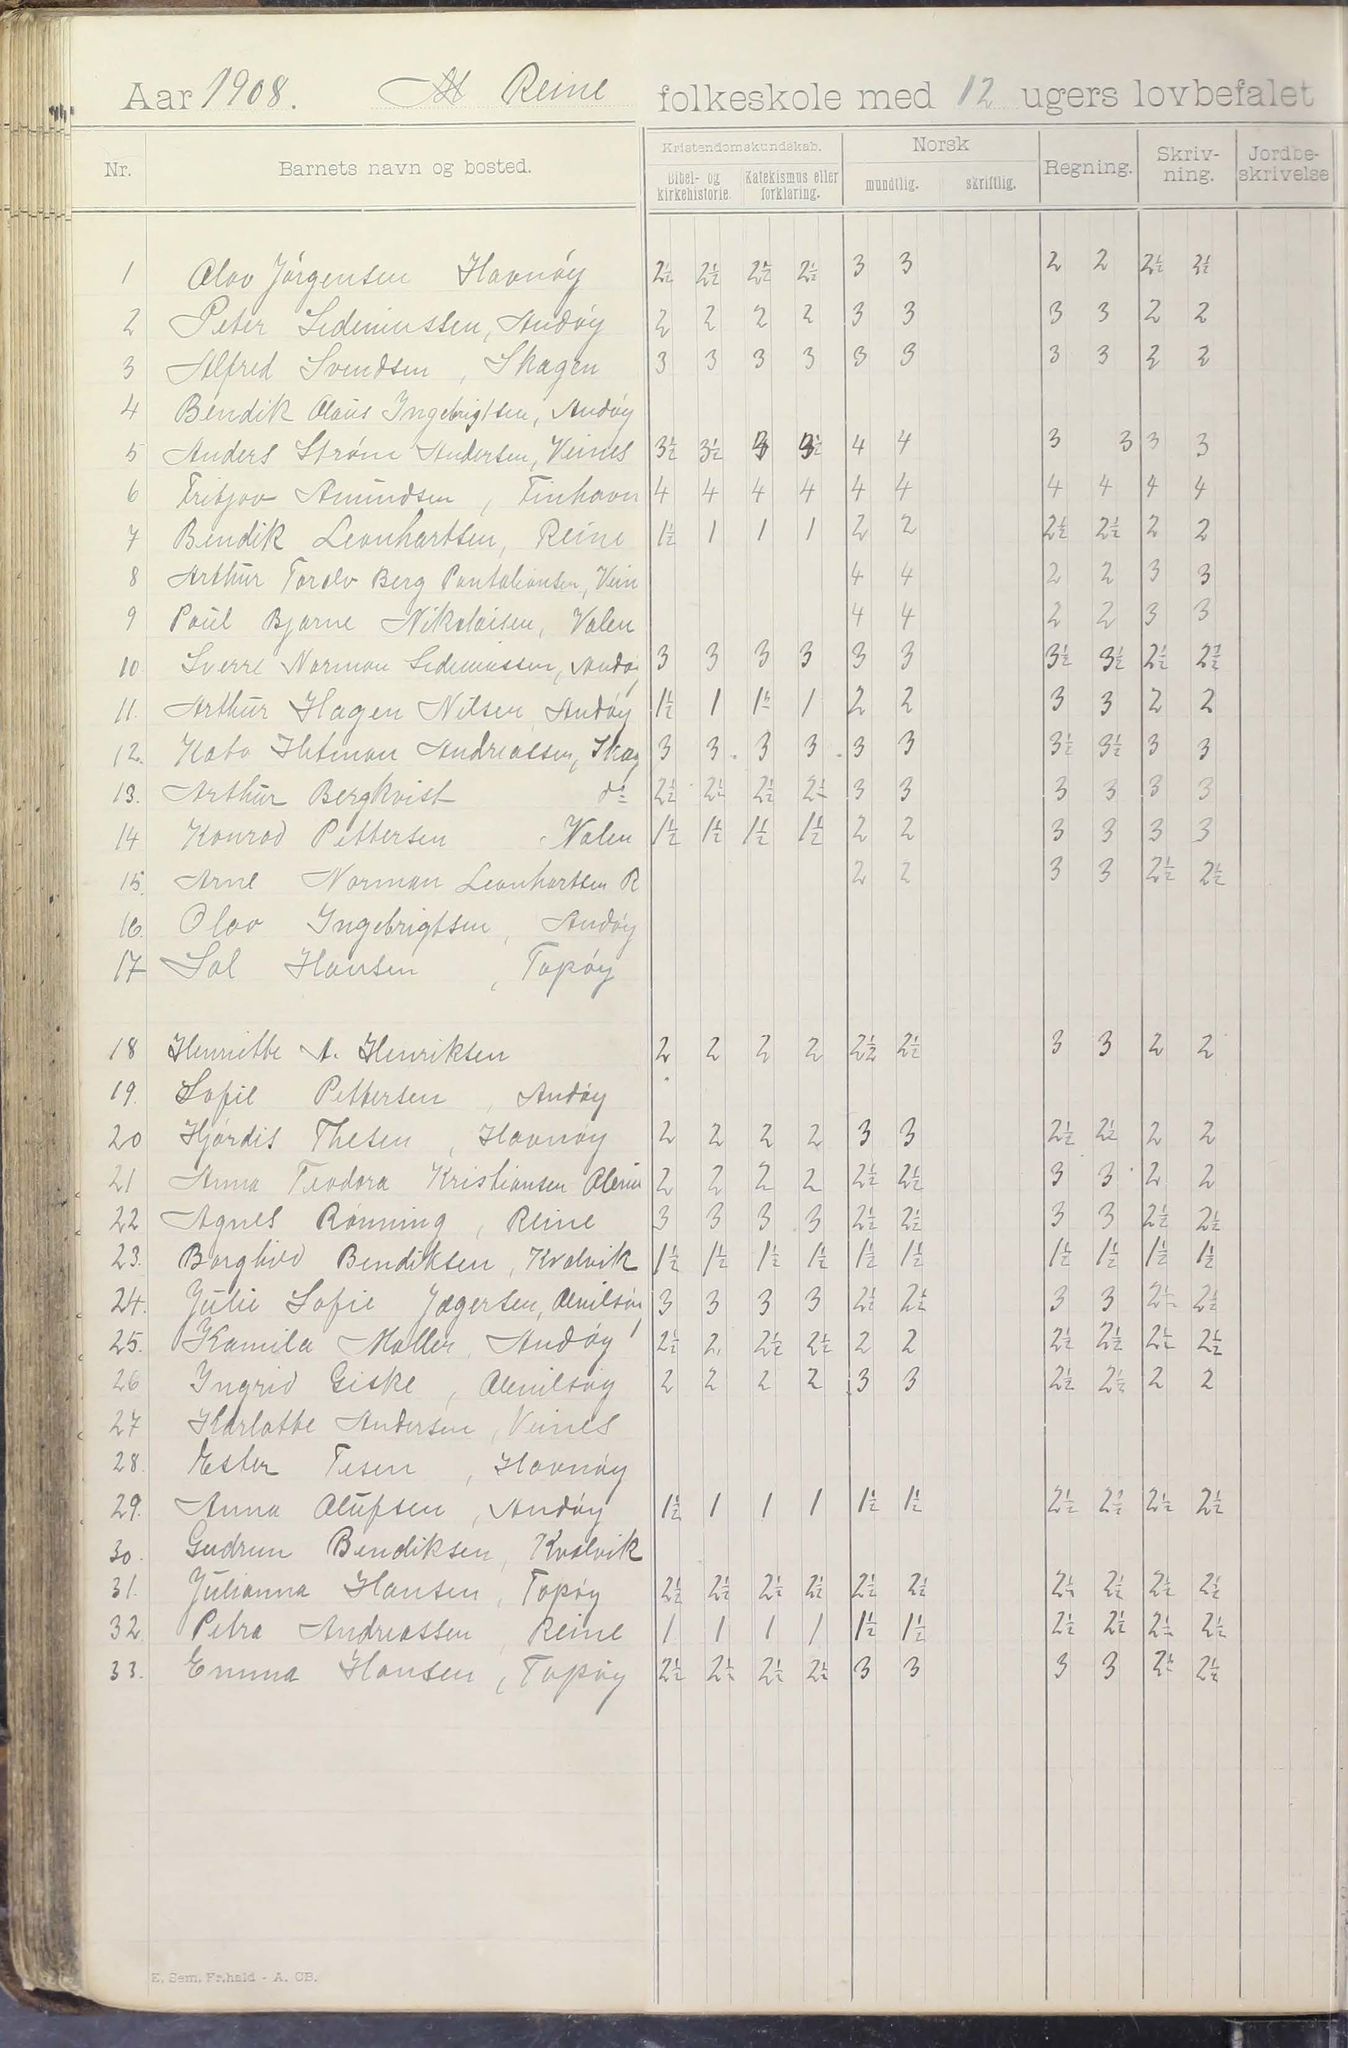 Aar 1908. Reine folkeskole med 12 ugers lovbefalet
Nr. Barnets navn og bosted. Kristendomskundskab. Norsk Regning. Skriv-ning. Jordbe-skrivelse
Bibel- og kirkehistorie. Katekismus eller forklaring. mundtlig. skriftlig.
1 Olav Jörgensen Havnöy 2½ 2½ 2½ 2½ 3 3 2 2 2½ 2½
2 Peter Sedeniussen, Andöy 2 2 2 2 3 3 3 3 2 2
3 Alfred Svendsen, Skagen 3 3 3 3 3 3 3 3 2 2
4 Bendik Olaus Ingebrigtsen, Andöy
5 Anders Strøm Andersen, Veines 3½ 3½ 3 3½ 4 4 3 3 3 3
6 Fritjov Amundsen, Finhavn 4 4 4 4 4 4 4 4 4 4
7 Bendik Leonhartsen, Reine 1½ 1 1 1 2 2 2½ 2½ 2 2
8 Arthur Berg Pantaliansen, Vein 4 4 2 2 3 3
9 Paul Bjarne Nikolaisen, Valen 4 4 2 2 3 3
10 Sverre Norman Sedeniussen, Andöy 3 3 3 3 3 3 3½ 3½ 2½ 2½
11. Arthur Hagen Nilsen Andöy 1½ 1 1½ 1 2 2 3 3 2 2
12. Kato Hetman Andreassen, Skag 3 3. 3 3. 3 3 3½ 3½ 3 3
13. Arthur Bergkvist do 2½ 2½ 2½ 2½ 3 3 3 3 3 3
14 Konrad Pettersen Valen 1½ 1½ 1½ 1½ 2 2 3 3 3 3
15. Arne Norman Leonhartsen R 2 2 3 3 2½ 2½
16. Olav Ingebrigtsen, Andöy
17 Sal Hansen, Topöy
18 Henriette A. Henriksen 2 2 2 2 2½ 2½ 3 3 2 2
19. Sofie Pettersen, Andöy
20 Hjördis Thesen, Havnöy 2 2 2 2 3 3 2½ 2½ 2 2
21 Anna Teodora Kristiansen 2 2 2 2 2½ 2½ 3 3 2 2
22 Agnes Rönning, Reine 3 3 3 3 2½ 2½ 3 3 2½ 2½
23. Borghild Bendiksen, Kvalvik 1½ 1½ 1½ 1½ 1½ 1½ 1½ 1½ 1½ 1½
24. Julie Sofie Jægersen, Olenilsöy 3 3 3 3 2½ 2½ 3 3 2½ 2½
25. Kamila Møller, Andöy 2½ 2. 2½ 2½ 2 2 2½ 2½ 2½ 2½
26 Ingrid Giske, Olenilsöy 2 2 2 2 3 3 2½ 2½ 2 2
27 Karlotte Andersen, Veines
28. Ester Tesen, Havnöy
29. Anna Olufsen, Andöy 1½ 1 1 1 1½ 1½ 2½ 2½ 2½ 2½
30. Gudrun Bendiksen, Kvalvik
31. Julianna Hansen, Topöy 2½ 2½ 2½ 2½ 2½ 2½ 2½ 2½ 2½ 2½
32. Petra Andreassen, Reine 1 1 1 1 1½ 1½ 2½ 2½ 2½ 2½
33. Emma Hansen, Topöy 2½ 2½ 2½ 2½ 3 3 3 3 2½ 2½
E. Sem. Fr.hald - A. CB.